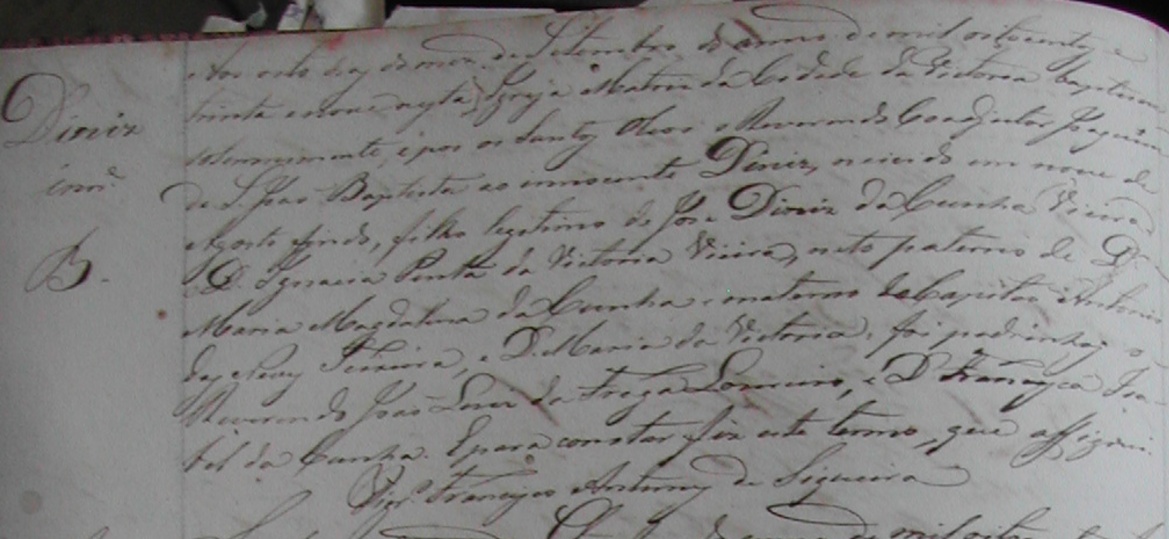 Diniz
inn.e
B.
Aos oito dias do mez de Setembro do anno de mil oitocentos e
trinta e nove nesta Igreja Matriz da Cidade da Victoria baptisou
solemnemente, e pos os Santos Oleos o Reverendo Coadjutor Joaquim
de S. João Baptista ao innocente Diniz, nascido em nove de
Agosto findo, filho legitimo de José Diniz da Cunha Vieira
D. Ignacia Pinta da Victoria Vieira, neto paterno de D.
Maria Magdalena da Cunha e materno do Capitão Antonio
das Neves Teixeira, e D. Maria da Victoria, foi padrinhos o
Reverendo João Luiz da Fraga Loureiro, e D. Francisca Isa-
bel da Cunha. E para constar fiz este termo, que assignei.
Vigr.o Francisco Antunes de Siqueira
de mil oito